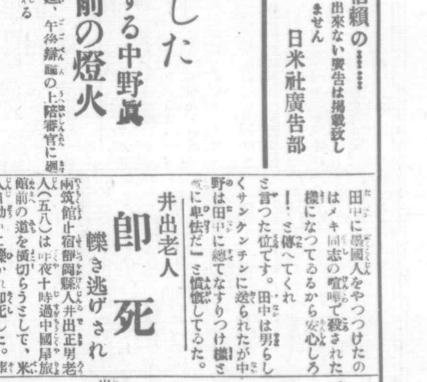 信頼の……
出來ない廣告は掲載致し
ません
日米社廣告部
した
する中野眞
前の燈火
午後辯論の上陪審官に廻
れる
田中に墨國人をやつつけたの
はメキ同志の喧嘩で殺された
樣になつてるから安心しろ
――と傳へてくれ
と言つた位です。田中は男らし
くサンケンチンに送られたが中
野は田中に總てなすりつけ樣と
に卑怯だ」と憤慨してゐた。
井出老人
卽死
轢き逃げされ
兩筑館止宿靜岡縣人井出正男老
人(五八)は昨夜十時過中國屋旅
館前の道を横切らうとして、米